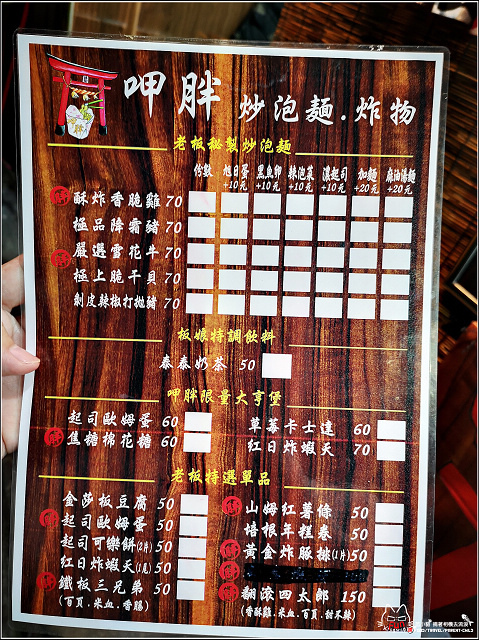 呷胖 炒泡麵.炸物
老板秘製炒泡麵
份數 旭日蛋 黑魚卵 辣泡菜 濃起司 加麵 麻油湯麵
+10元 +10元 +10元 +10元 +20元 +20元
酥炸香脆雞 70
極品降霜豬 70
嚴選雪花牛 70
極上脆干貝 70
剝皮辣椒打拋豬 70
板娘特調飲料
泰泰奶茶 50
呷胖限量大亨堡
起司歐姆蛋 60
焦糖棉花糖 60
草莓卡士達 60
紅日炸蝦天 70
老板特選單品
金莎板豆腐 50
起司歐姆蛋 50
起司可樂餅(2片) 50
紅日炸蝦天(1尾) 50
鐵板三兄弟 50
(百頁.米血.香腸)
山姆紅薯條 50
培根年糕卷 50
黃金炸豚排(1片) 50
翻滾四太郎 150
(香酥雞.米血.百頁.甜不辣)